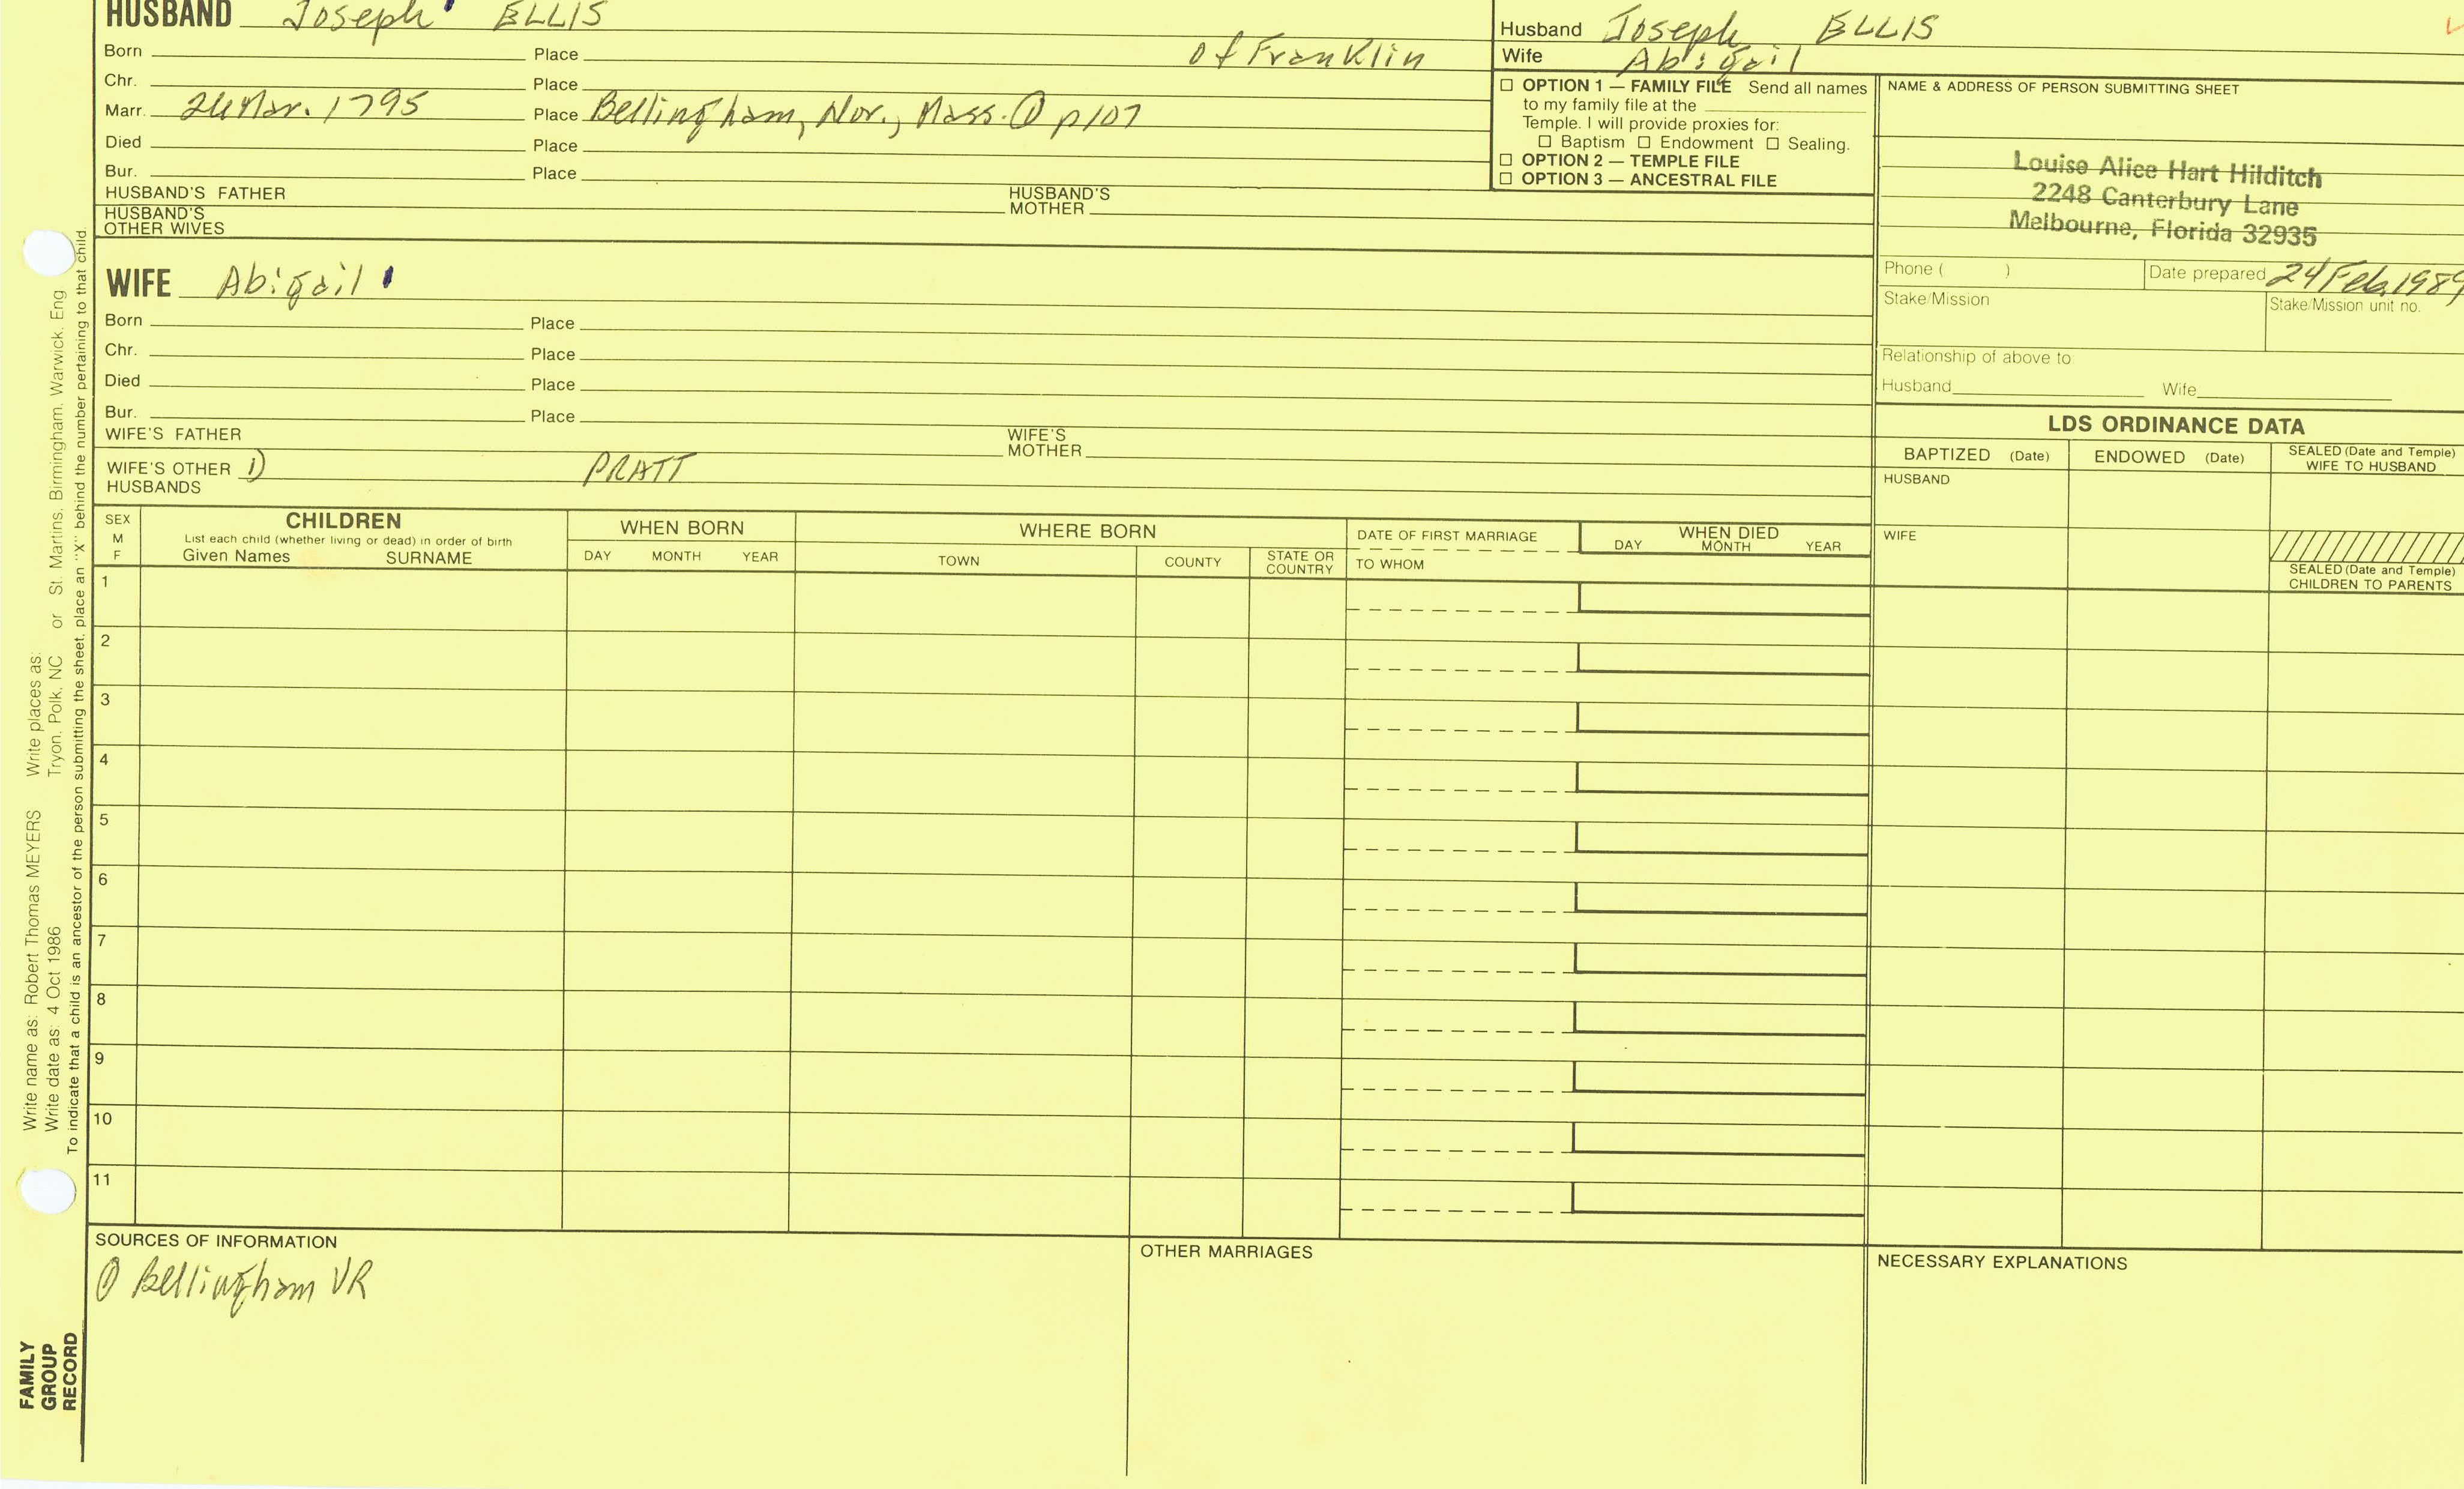 HUSBAND Joseph ELLIS
Born Place of Franklin
Chr. Place
Marr. Mar. 1795 Place Bellingham, Nor., Mass. ① p107
Died Place
Bur. Place
HUSBAND'S FATHER HUSBAND'S MOTHER
HUSBAND'S OTHER WIVES
Husband Joseph ELLIS
Wife Abigail
☐ OPTION 1 — FAMILY FILE Send all names
to my family file at the
Temple. I will provide proxies for:
☐ Baptism ☐ Endowment ☐ Sealing.
☐ OPTION 2 — TEMPLE FILE
☐ OPTION 3 — ANCESTRAL FILE
NAME & ADDRESS OF PERSON SUBMITTING SHEET
Louise Alice Hart Hilditch
2248 Canterbury Lane
Melbourne, Florida 32935
Phone ( ) Date prepared 24 Feb. 1989
Stake/Mission Stake/Mission unit no.
Relationship of above to
Husband Wife
WIFE Abigail
Born Place
Chr. Place
Died Place
Bur. Place
WIFE'S FATHER WIFE'S MOTHER
WIFE'S OTHER HUSBANDS 1) PRATT
LDS ORDINANCE DATA
BAPTIZED (Date) ENDOWED (Date) SEALED (Date and Temple) WIFE TO HUSBAND
HUSBAND
WIFE
SEALED (Date and Temple)
CHILDREN TO PARENTS
SEX M F
CHILDREN
List each child (whether living or dead) in order of birth
Given Names SURNAME
WHEN BORN
DAY MONTH YEAR
WHERE BORN
TOWN COUNTY STATE OR COUNTRY
DATE OF FIRST MARRIAGE
TO WHOM
WHEN DIED
DAY MONTH YEAR
1
2
3
4
5
6
7
8
9
10
11
SOURCES OF INFORMATION
① Bellingham VR
OTHER MARRIAGES
NECESSARY EXPLANATIONS
Write name as: Robert Thomas MEYERS Write places as:
Write date as: 4 Oct 1986 Tryon, Polk, NC or St. Martins, Birmingham, Warwick, Eng
To indicate that a child is an ancestor of the person submitting the sheet, place an "X" behind the number pertaining to that child.
FAMILY
GROUP
RECORD